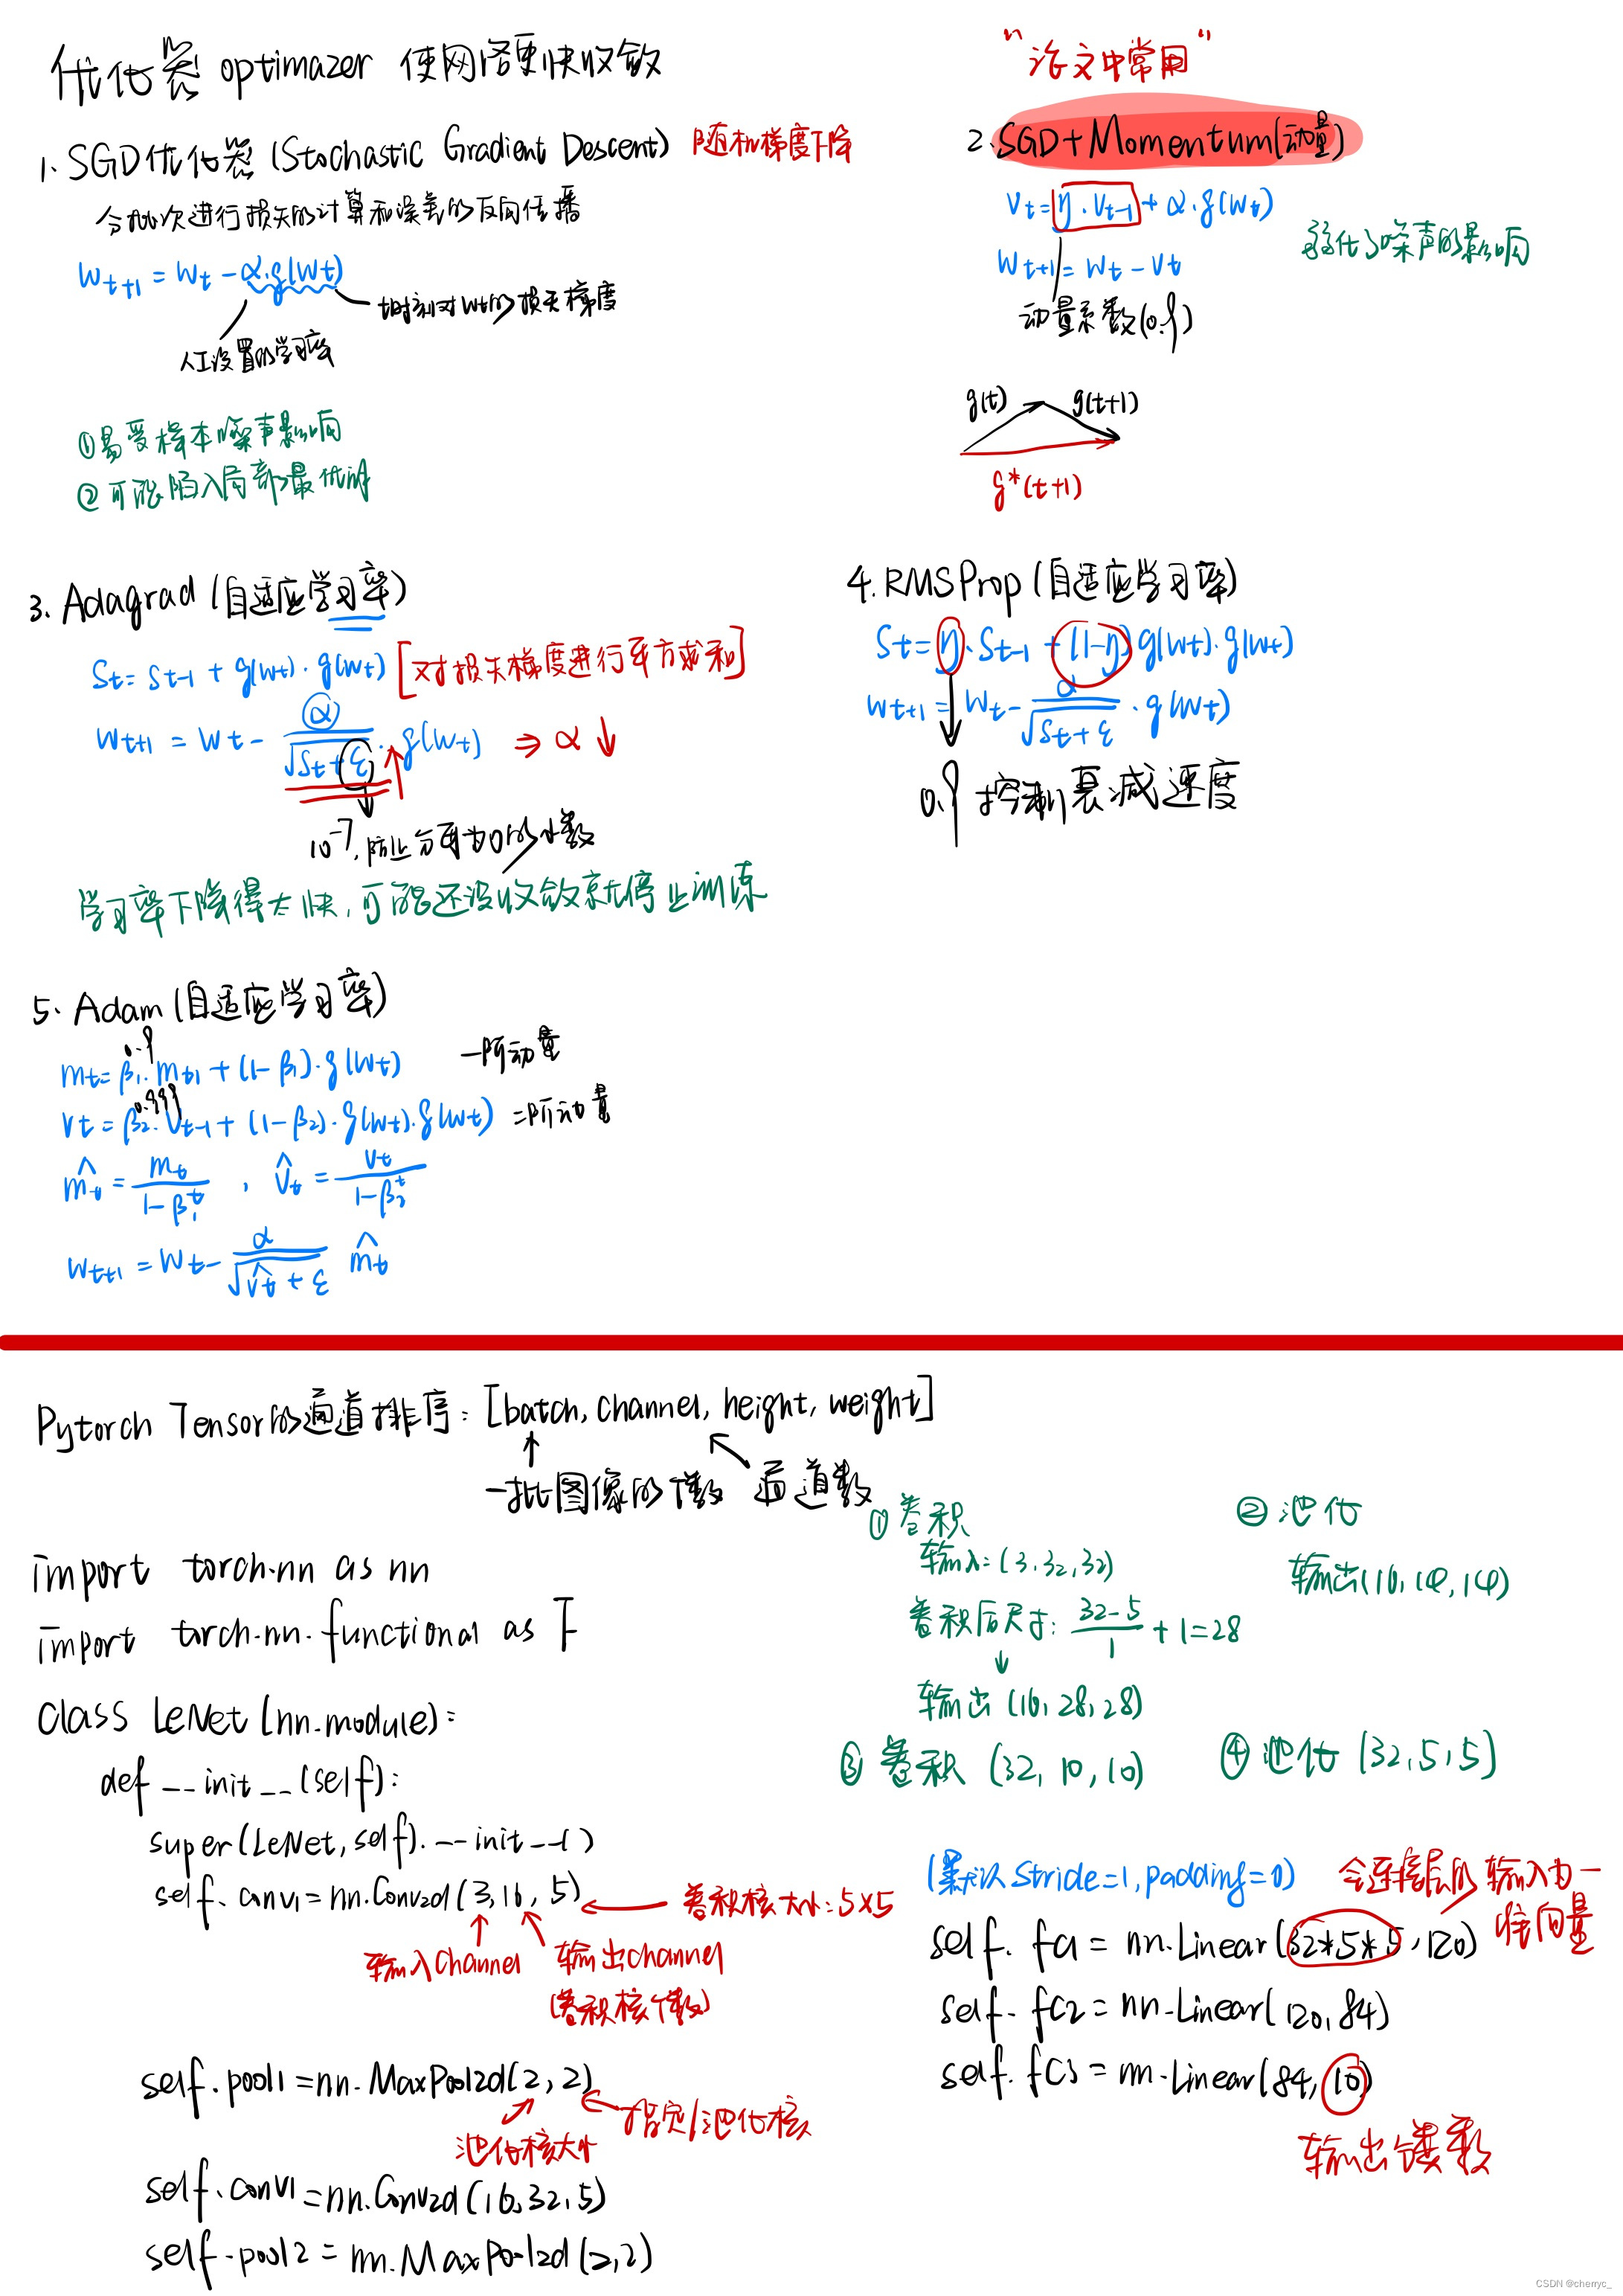 优化器 optimazer 使网络更快收敛
1. SGD优化器 (Stochastic Gradient Descent) 随机梯度下降
分批次进行损失的计算和误差的反向传播
Wt+1 = Wt - α·g(Wt)
t时刻对Wt的损失梯度
人工设置的学习率
①易受样本噪声影响
②可能陷入局部最优解
"论文中常用"
2. SGD+Momentum(动量)
Vt = η·Vt-1 + α·g(Wt)
Wt+1 = Wt - Vt
弱化了噪声的影响
动量系数(0.9)
g(t) g(t+1)
g*(t+1)
3. Adagrad (自适应学习率)
St = St-1 + g(Wt)·g(Wt) [对损失梯度进行平方求和]
Wt+1 = Wt - α/√St+ε · g(Wt) ⇒ α ↓
10^-7, 防止分母为0的小数
学习率下降得太快, 可能还没收敛就停止训练
4. RMSProp (自适应学习率)
St = η·St-1 + (1-η) g(Wt)·g(Wt)
Wt+1 = Wt - α/√St+ε · g(Wt)
0.9 控制衰减速度
5. Adam (自适应学习率)
0.9
mt = β1·mt-1 + (1-β1)·g(Wt) 一阶动量
0.999
Vt = β2·Vt-1 + (1-β2)·g(Wt)·g(Wt) 二阶动量
m̂t = mt/1-β1^t , V̂t = Vt/1-β2^t
Wt+1 = Wt - α/√V̂t+ε m̂t
Pytorch Tensor的通道排序: [batch, channel, height, weight]
一批图像的个数 通道数
import torch.nn as nn
import torch.nn.functional as F
class LeNet (nn.module):
def __init__(self):
super(LeNet, self).__init__()
self.conv1 = nn.Conv2d(3, 16, 5) ← 卷积核大小: 5×5
输入channel 输出channel
(卷积核个数)
self.pool1 = nn.MaxPool2d(2, 2)
池化核大小
指定池化核
self.conv1 = nn.Conv2d(16, 32, 5)
self.pool2 = nn.MaxPool2d(2, 2)
① 卷积
输入: (3, 32, 32)
卷积后尺寸: 32-5/1 + 1 = 28
输出 (16, 28, 28)
② 池化
输出(16, 14, 14)
③ 卷积 (32, 10, 10)
④ 池化 (32, 5, 5)
(默认 Stride=1, padding=0)
全连接层的输入为一
维向量
self.fc1 = nn.Linear(32*5*5, 120)
self.fc2 = nn.Linear(120, 84)
self.fc3 = nn.Linear(84, 10)
输出类数
CSDN @cherryc_